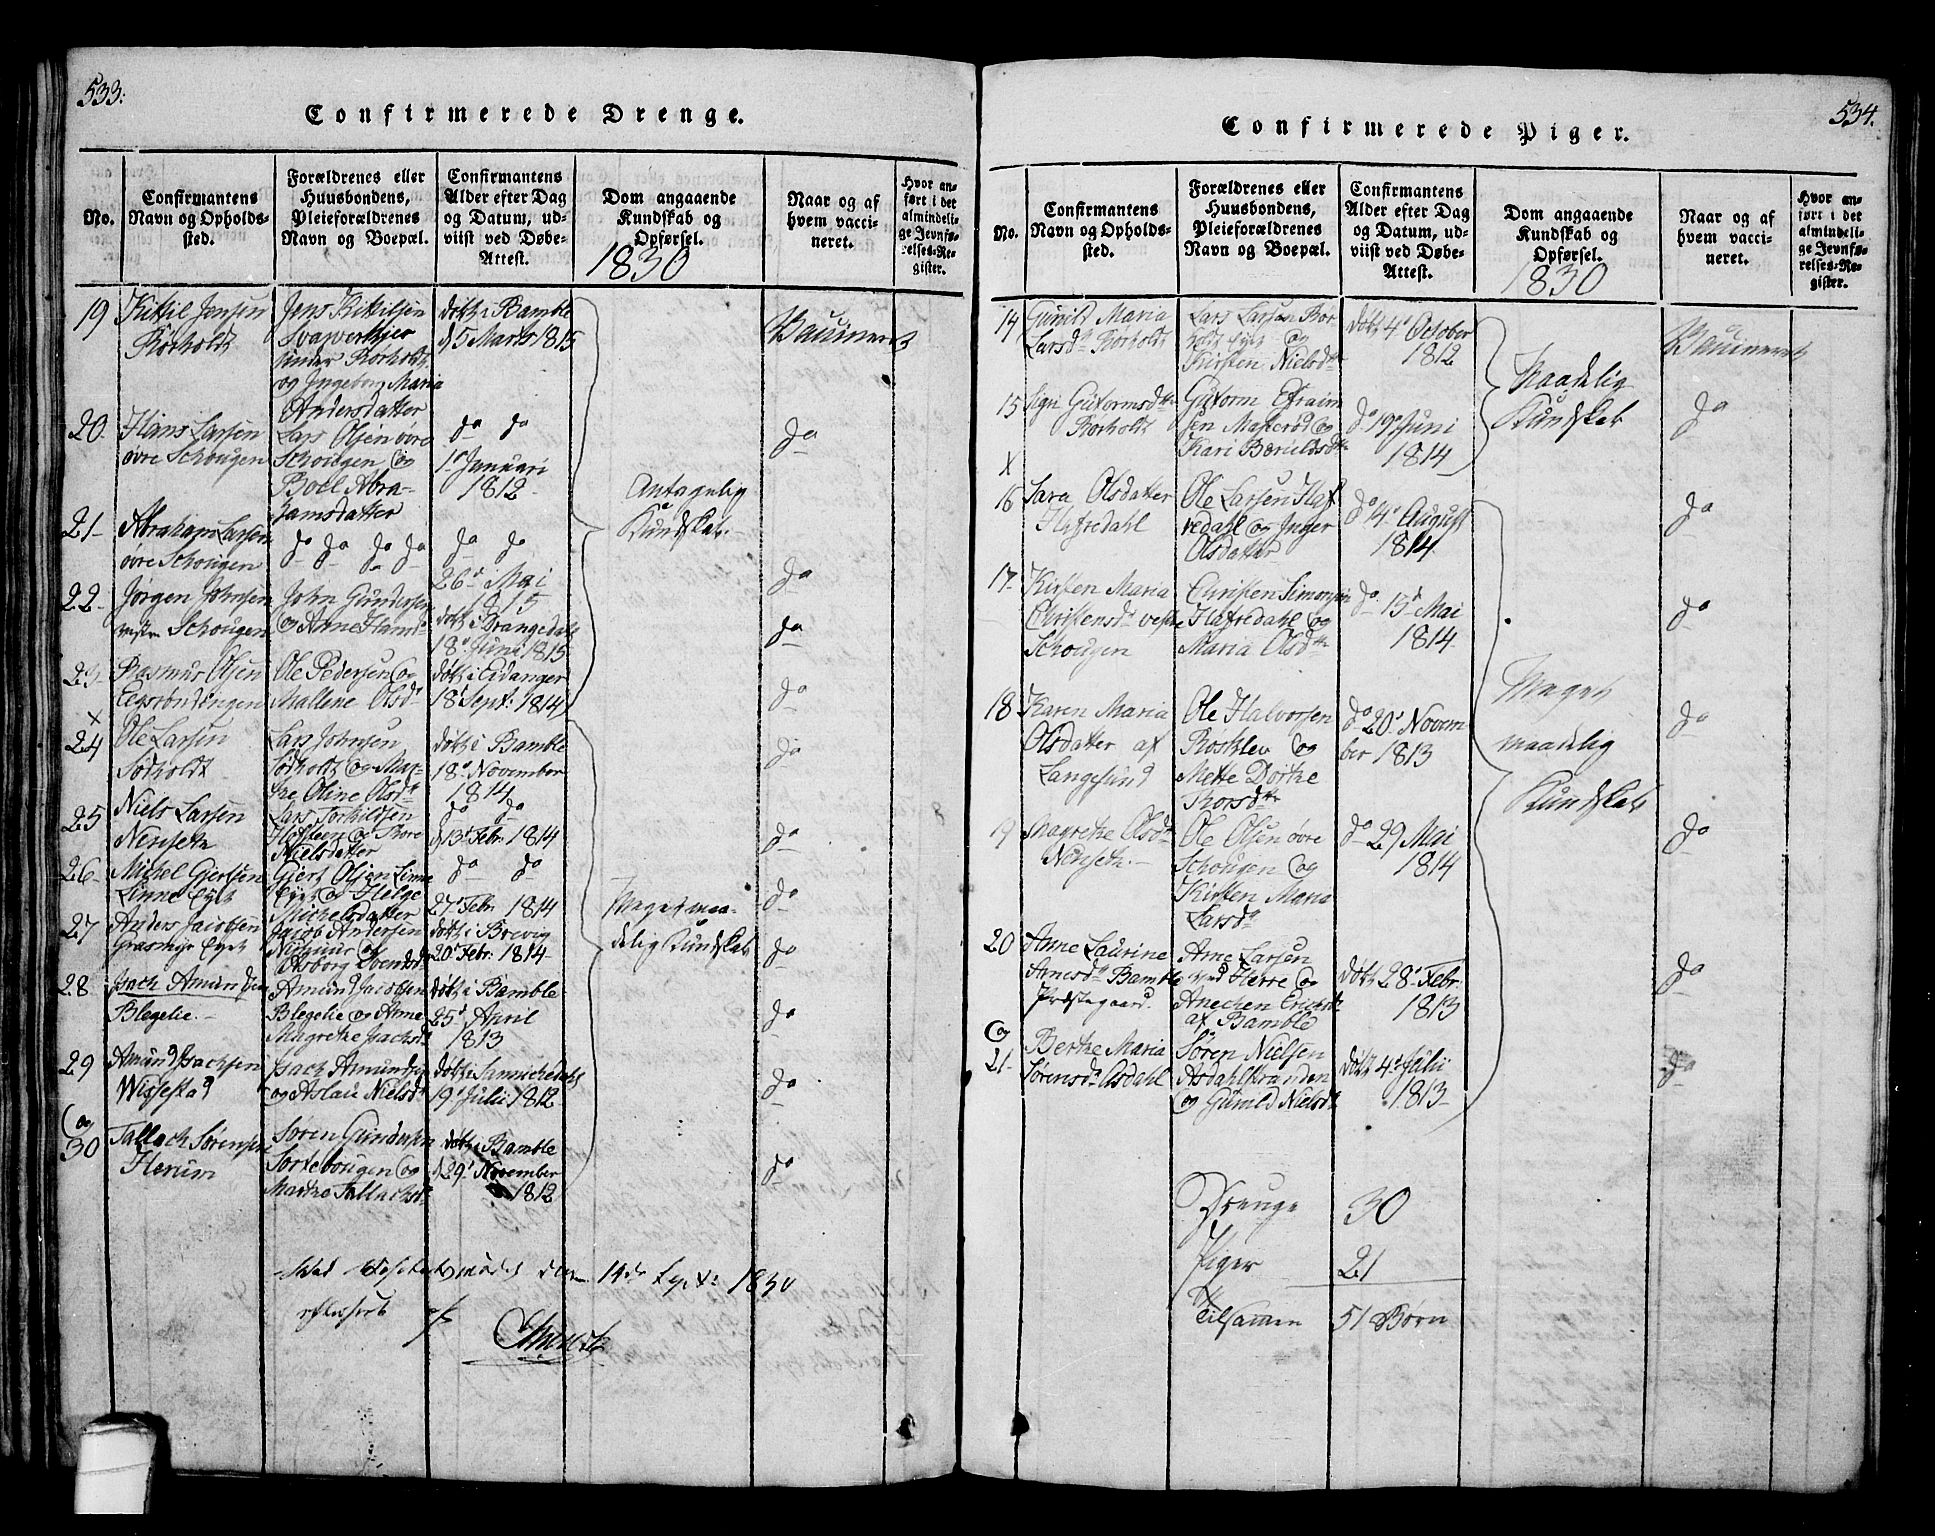 533.
Confirmerede Drenge.
No.
Confirmantens
Navn og Opholds-
sted.
Forældrenes eller
Huusbondens,
Pleieforældrenes
Navn og Boepæl.
Confirmantens
Alder efter Dag
og Datum, ud-
viist ved Døbe-
Attest.
Dom angaaende
Kundskab og
Opførsel.
1830
Naar og af
hvem vacci-
neret.
Hvor an-
ført i det
almindeli-
ge Jevnfø-
relses-Re-
gister.
19
Kittil Jensen
Rørholdt
Jens Kittilsen
under Rørholdt
og Ingeborg Maria
Andersdatter
født i Bamble
d 5 Marts 1815
Vaccineret
20.
Hans Larsen
øvre Schougen
Lars Olsen øvre
Schougen og
Boel Abra-
hamsdatter
do do
1. Januari
1812
Antagelig
Kundskab.
do
21-
Abraham Larsen
øvre Schougen
do do do do
do do
26d Mai
1815
do
22-
Jørgen Johnsen
vestre Schougen
John Gundersen
og Anne Hans
født i Drangedahl
18d Juni 1815
do
23-
Rasmus Olsen
Ole Pedersen og
Mallene Olsd
født i Eidanger
18d Sept: 1814
do
x
24
Ole Larsen
Sødholdt
Lars Johnsen
Sødholdt og Mar-
the Oline Olsd
født i Bamble
18d November
1814
do
25
Niels Larsen
Nenseth
Lars Torkildsen
Nielsdatter
do do
d 13d Febr. 1814
do
26-
Michel Giertsen
Linne Eyet
Giert Olsen Linne
Eyet og Helge
Michelsdatter
do do
27d Febr 1814
Meget maa-
delig Kundskab
do
27
Anders Jacobsen
Grasmyr Eyet
Jacob Andersen
født i Brevig
20d Febr: 1814
do
28
Isach Amundsen
Blegelie.
Amund Jacobsen
Blegelie og Anne
Magrethe Isachsd
født i Bamble
25d April
1813
do
29
Amund Isachsen
Wissestad
Isach Amundsen
og Aslau Nielsd
født i Sannichedahl
19d Julii 1812
do
Og
30
Tallach Sørensen
Herum
Søren Gundersen
Sortebougen og
Marthe Tallachsd
født i Bamble
d 29d November
1812
do
14de Sept: 1830
534.
Confirmerede Piger.
No.
Confirmantens
Navn og Opholds-
sted.
Forældrenes eller
Huusbondens,
Pleieforældrenes
Navn og Boepæl.
Confirmantens
Alder efter Dag
og Datum, ud-
viist ved Døbe-
Attest.
Dom angaaende
Kundskab og
Opførsel.
1830
Naar og af
hvem vacci-
neret.
Hvor an-
ført i det
almindeli-
ge Jevnfø-
relses-Re-
gister.
14
Gunild Maria
Larsd Rørholdt
Lars Larsen Rør-
holdt Eyet og
Kirsten Nielsd
født 4d October
1812
Maadelig
Kundskab
Vaccineret
15
Sigri Gutormsd
Rørholdt
Gutorm Efraim
sen Masterød og
do 19d Juni
1814
do
x
16
Sara Olsdatter
Hafredahl
Ole Larsen Haf
redahl og Inger
Olsdatter
do 4d August
1814
do
17-
Kirsten Maria
Christensd vestre
Schougen
Christen Simonsen
Hafredahl og
Maria Olsd
do 15d Mai
1814
do
18
Karen Maria
Olsdatter af
Langesund
Ole Halvorsen
Rosklev og
Mette Dorthe
Roosd
do 20d Novem
ber 1813
Meget
maadelig
Kundskab
do
19
Magrethe Olsd
Nenseth.
Ole Olsen øvre
Schougen og
Kirsten Maria
Larsd
do 29 Mai
1814
do
20
Anne Laurine
Arnesd Bamble
Præstegaard.
Arne Larsen
ved Herre og
Anechen Erichsd
af Bamble
født 28d Febr.
1813
do
Og
21-
Berthe Maria
Sørensd Asdahl
Søren Nielsen
Asdahlstranden
og Gunild Nielsd
født 4d Julii
1813
do
Drenge 30
Piger 21
Tilsammen 51 Børn